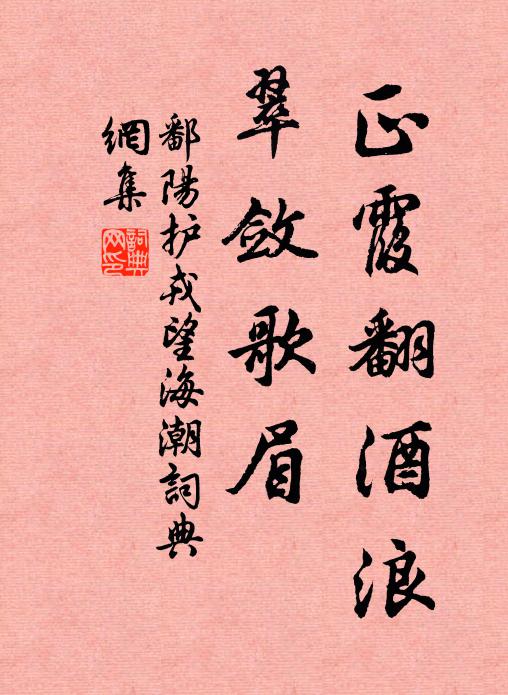 正霞翻酒浪
翠斂歌眉
鄱陽护戎望海潮詞典
網集
詞典网印